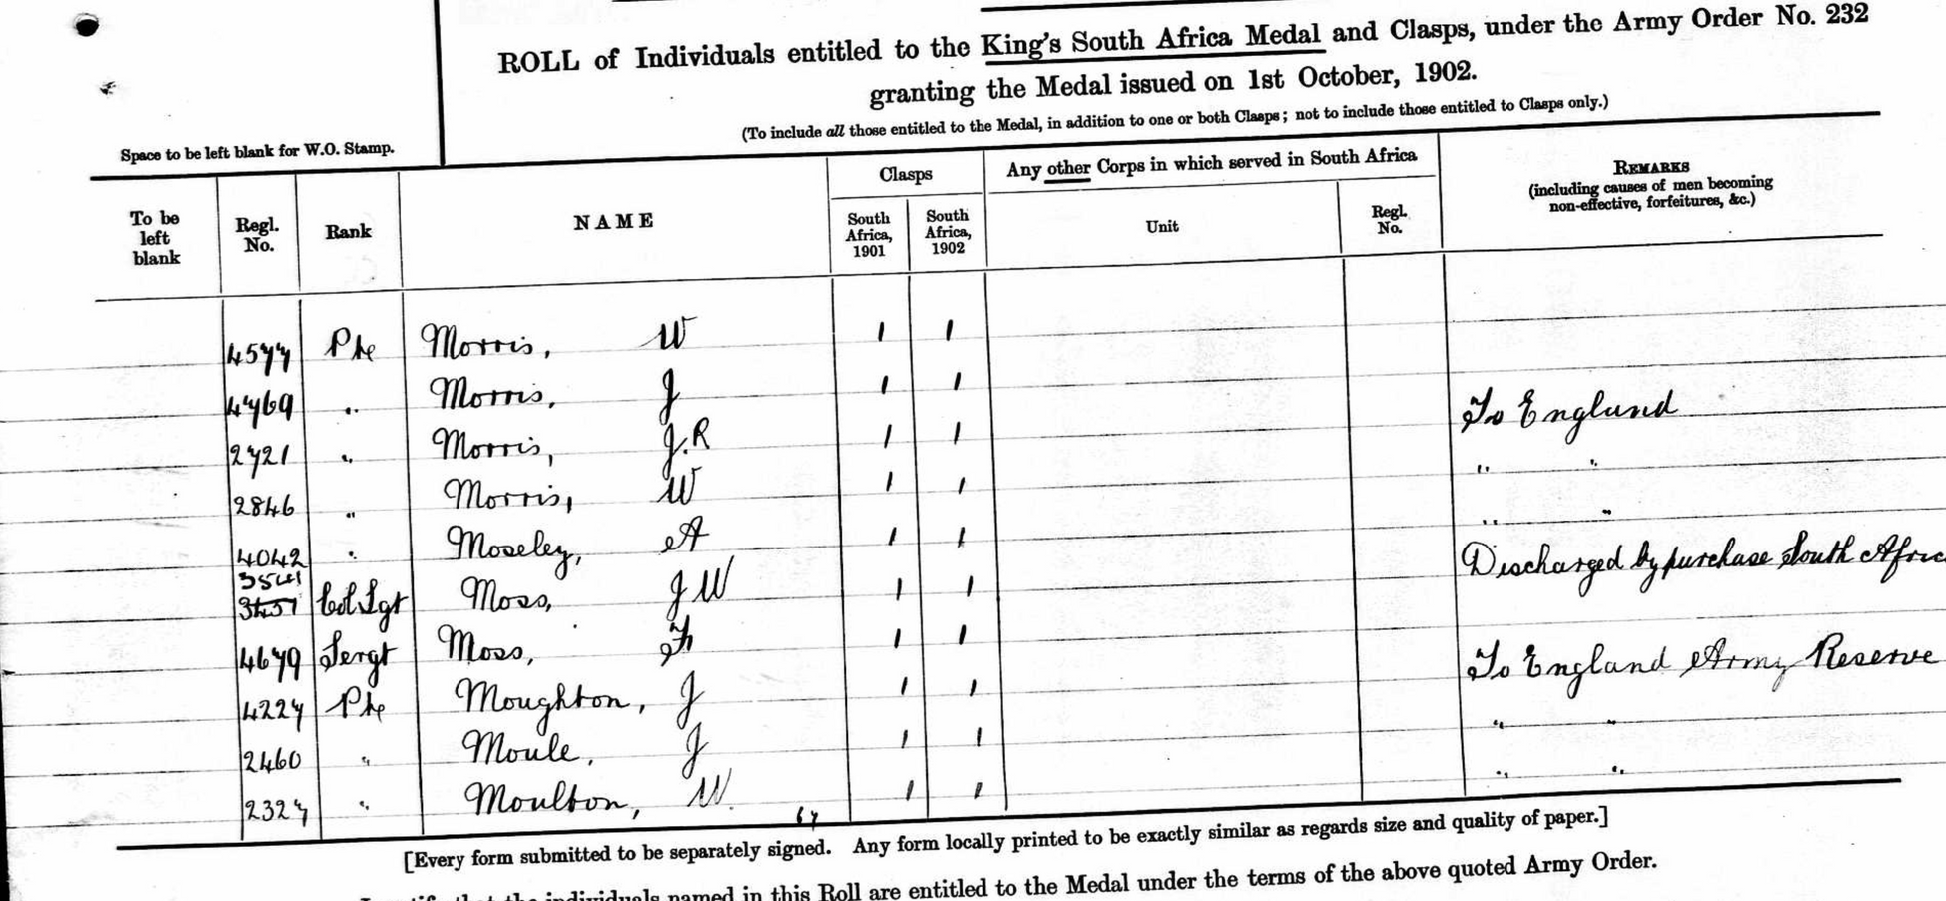 ROLL of Individuals entitled to the King's South Africa Medal and Clasps, under the Army Order No. 232
granting the Medal issued on 1st October, 1902.
(To include all those entitled to the Medal, in addition to one or both Clasps; not to include those entitled to Clasps only.)
Space to be left blank for W.O. Stamp.
To be left blank Regl. No. Rank NAME Clasps South Africa, 1901 South Africa, 1902 Any other Corps in which served in South Africa Unit Regl. No. REMARKS (including causes of men becoming non-effective, forfeitures, &c.)
4577 Pte Morris, W 1 1
4769 " Morris, J 1 1 To England
2721 " Morris, J.R 1 1 " "
2846 " Morris, W 1 1 " "
4042 " Moseley, A 1 1 Discharged by purchase South Afric
3541
3451 Col Sgt Moss, J W 1 1
4679 Sergt Moss, F 1 1 To England Army Reserve
4227 Pte Moughton, J 1 1 " "
2460 " Moule, J 1 1 " "
2327 " Moulton, W. 1 1
[Every form submitted to be separately signed. Any form locally printed to be exactly similar as regards size and quality of paper.]
individuals named in this Roll are entitled to the Medal under the terms of the above quoted Army Order.